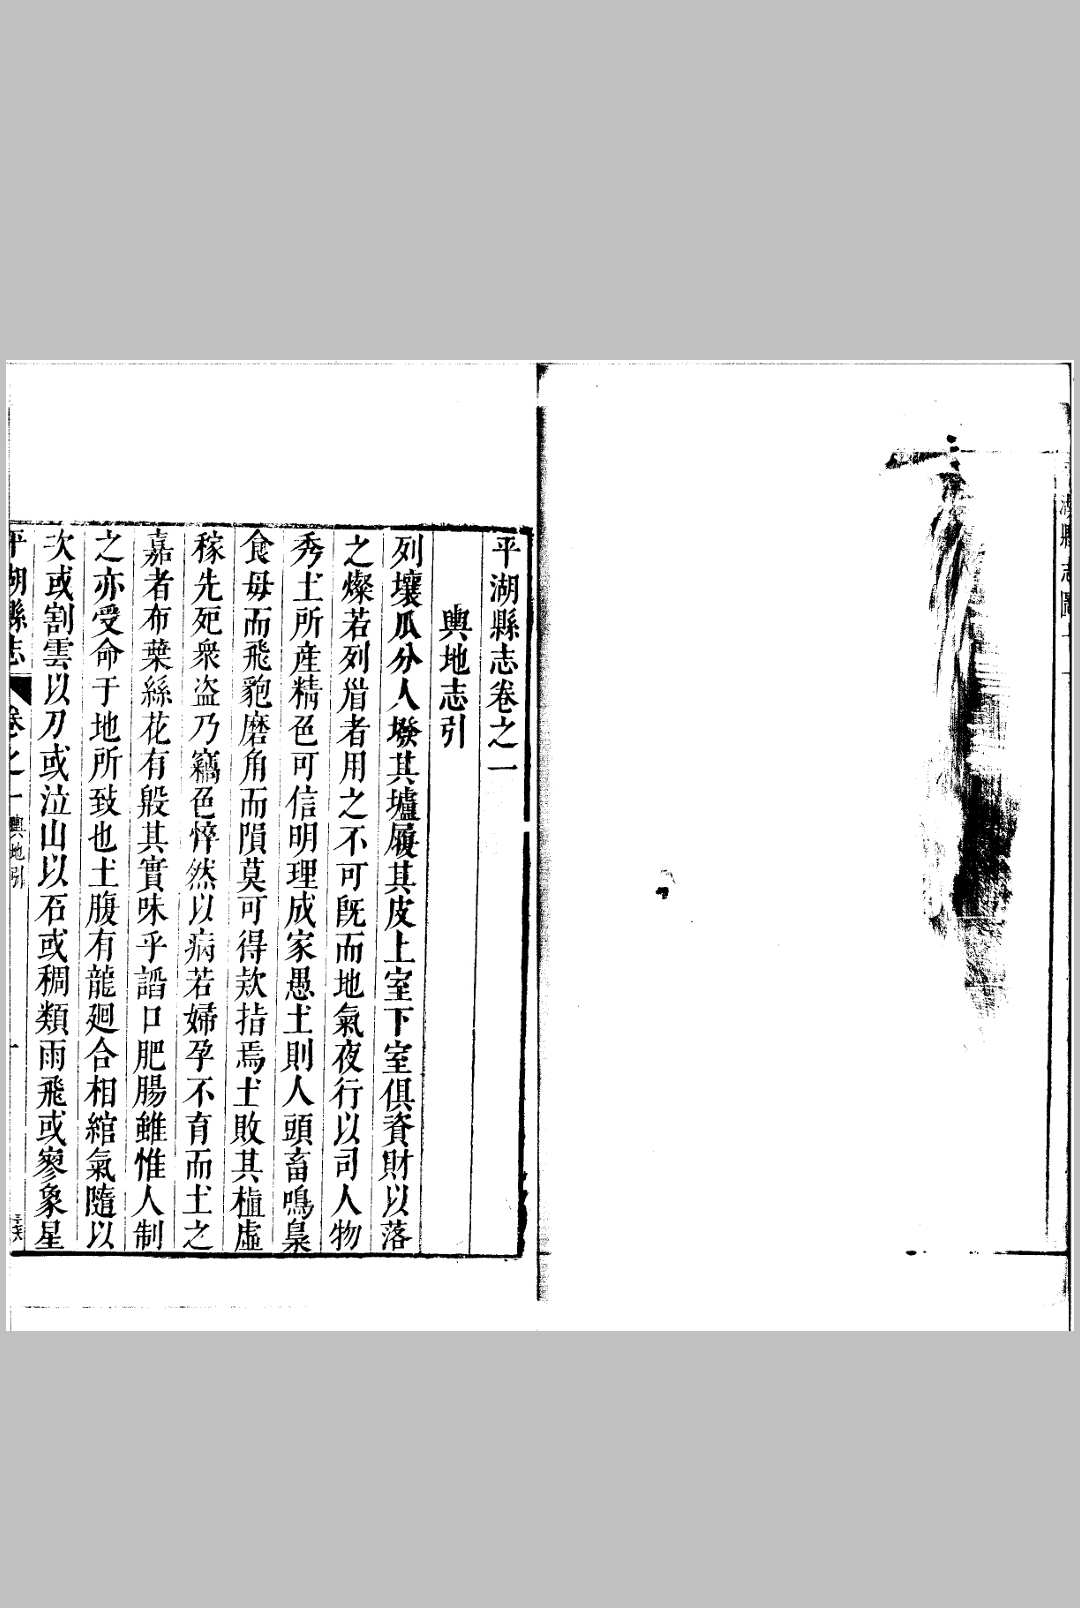 平湖縣志圖
平湖縣志卷之一
輿地志引
列壤瓜分人墢其壚履其皮上室下室俱資財以落
之燦若列眉者用之不可旣而地氣夜行以司人物
秀土所産精色可信明理成家愚土則人頭畜鳴梟
食母而飛豹磨角而隕莫可得欵指焉土敗其植虛
稼先死衆盜乃竊色悴然以病若婦孕不育而土之
嘉者布葉絲花有殷其實味乎謟口肥腸雖惟人制
之亦受命于地所致也土腹有龍廻合相綰氣隨以
次或割雲以刀或泣山以石或稠類雨飛或寥象星
平湖縣志 卷之一 輿地引 一